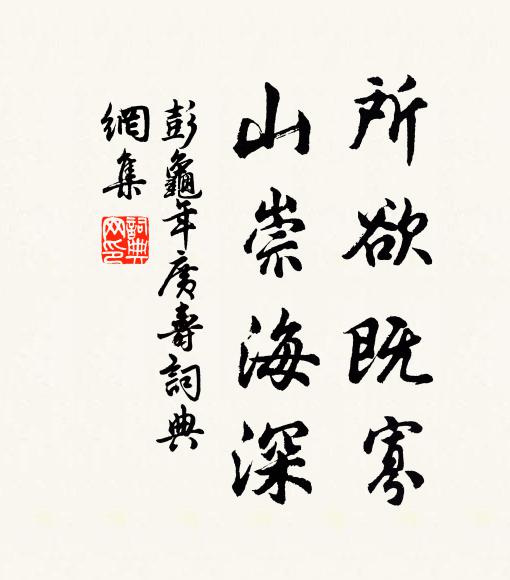 所欲既寡
山崇海深
彭龜年廣壽詞典
網集
詞典網印